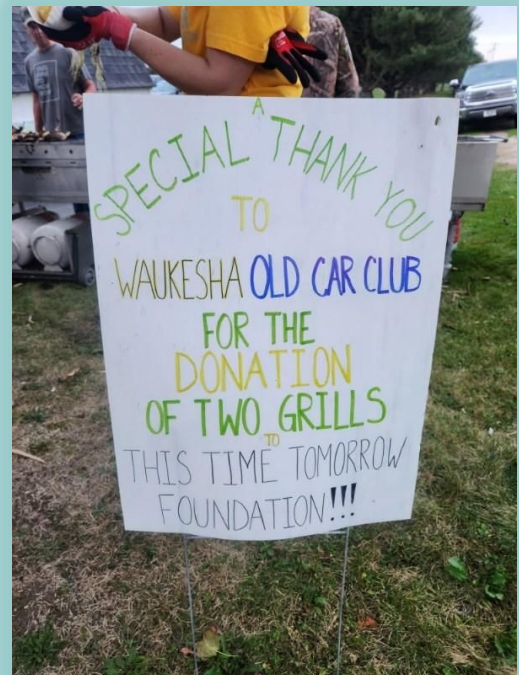 A
SPECIAL THANK YOU
TO
WAUKESHA OLD CAR CLUB
FOR THE
DONATION
OF TWO GRILLS
TO
THIS TIME TOMORROW
FOUNDATION!!!